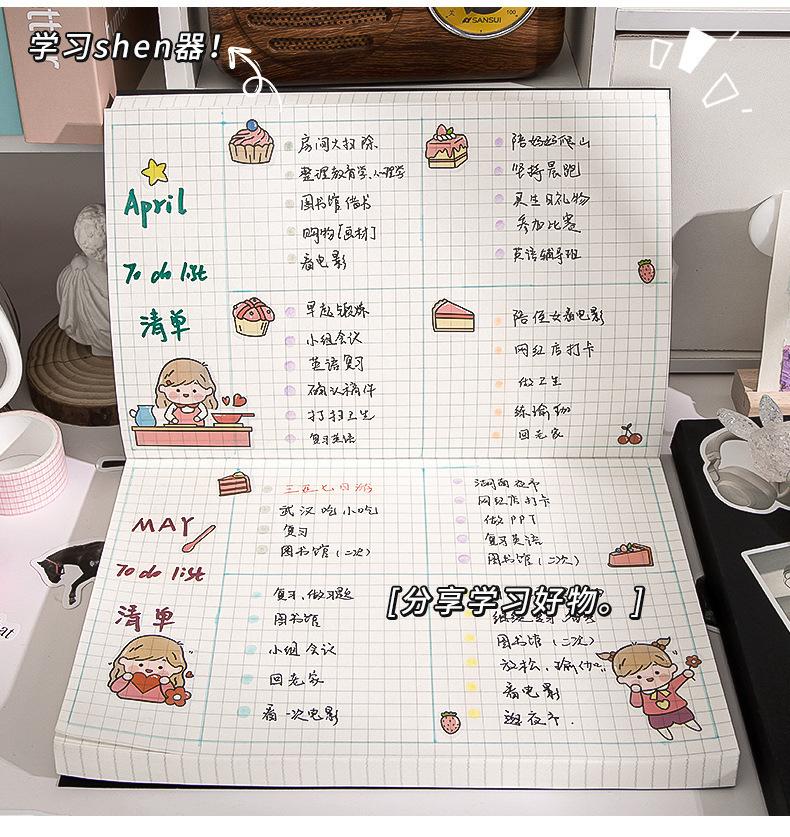 学习shen器!
SANSUI
100
April
To do list
清单
房间大扫除
整理教育学、心理学
图书馆借书
购物[画材]
看电影
陪妈妈爬山
坚持晨跑
买生日礼物
参加比赛
英语辅导班
早起锻炼
小组会议
英语复习
确认稿件
打扫卫生
复习英语
陪侄女看电影
网红店打卡
做卫生
练瑜伽
回老家
MAY
To do list
清单
三五七日游
武汉吃小吃
复习
图书馆(二次)
夜市
网红店打卡
做PPT
复习英语
图书馆(二次)
[分享学习好物。]
复习、做习题
图书馆
小组会议
回老家
看一次电影
图书馆(二次)
放松、瑜伽
看电影
逛夜市.
at